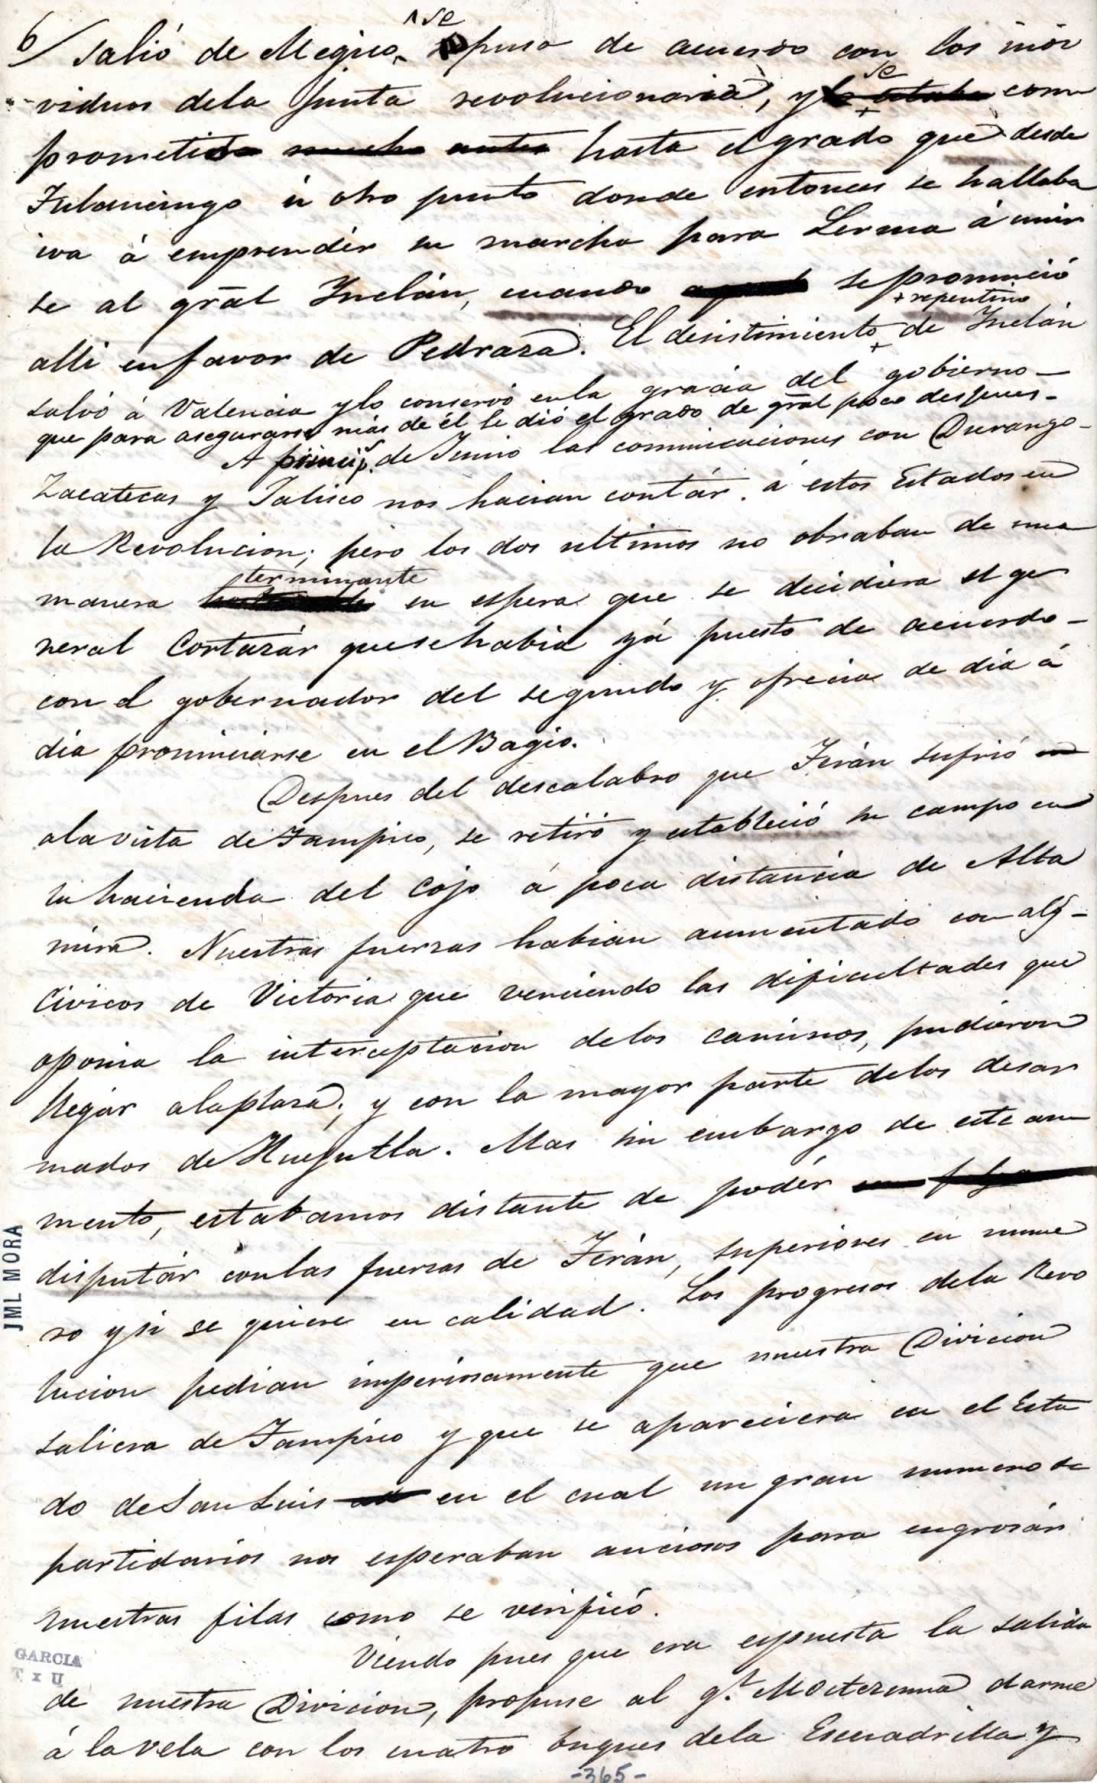 6/ salió de Megico, se puso de acuerdo con los indi
viduos dela Junta revolucionaria, y se com
prometió hasta el grado que desde
Tulancingo ú otro punto donde entonces se hallaba
iva á emprendér su marcha para Lerma á unir
se al gral Inclán, cuando se pronunció
alli en favor de Pedraza. El desistimiento repentino de Inclán
salvó á Valencia y lo conservó en la gracia del gobierno
que para asegurarse mas de él le dió el grado de gral poco despues.
A princip.s de Junio las comunicaciones con Durango
Zacatecas y Jalisco nos hacian contár á estos Estados en
la Revolucion; pero los dos ultimos no obraban de una
manera terminante en espera que se decidiera el ge
neral Cortazár que se habia yá puesto de acuerdo
con el gobernador del segundo y ofrecia de dia á
dia pronunciarse en el Bagio.
Despues del descalabro que Terán sufrió
a la vista de Tampico, se retiró y estableció su campo en
la hacienda del Cojo á poca distancia de Alta
mira. Nuestras fuerzas habian aumentado con alg.s
Civicos de Victoria que venciendo las dificultades que
oponia la interceptacion delos caminos, pudieron
llegár a la plaza; y con la mayor parte delos desar
mados de Huejutla. Mas sin embargo de este au
mento, estabamos distante de podér
disputár con las fuerzas de Terán, superiores en nume
ro y si se quiere en calidad. Los progresos dela Revo
lucion pedian imperiosamente que nuestra Division
saliera de Tampico y que se apareciera en el Esta
do de San Luis en el cual un gran numero de
partidarios nos esperaban anciosos para engrosár
nuestras filas como se verificó.
Viendo pues que era espuesta la salida
de nuestra Division, propuse al g.l Moctezuma darme
á la vela con los cuatro buques dela Escuadrilla y
-365-
JML MORA
GARCIA